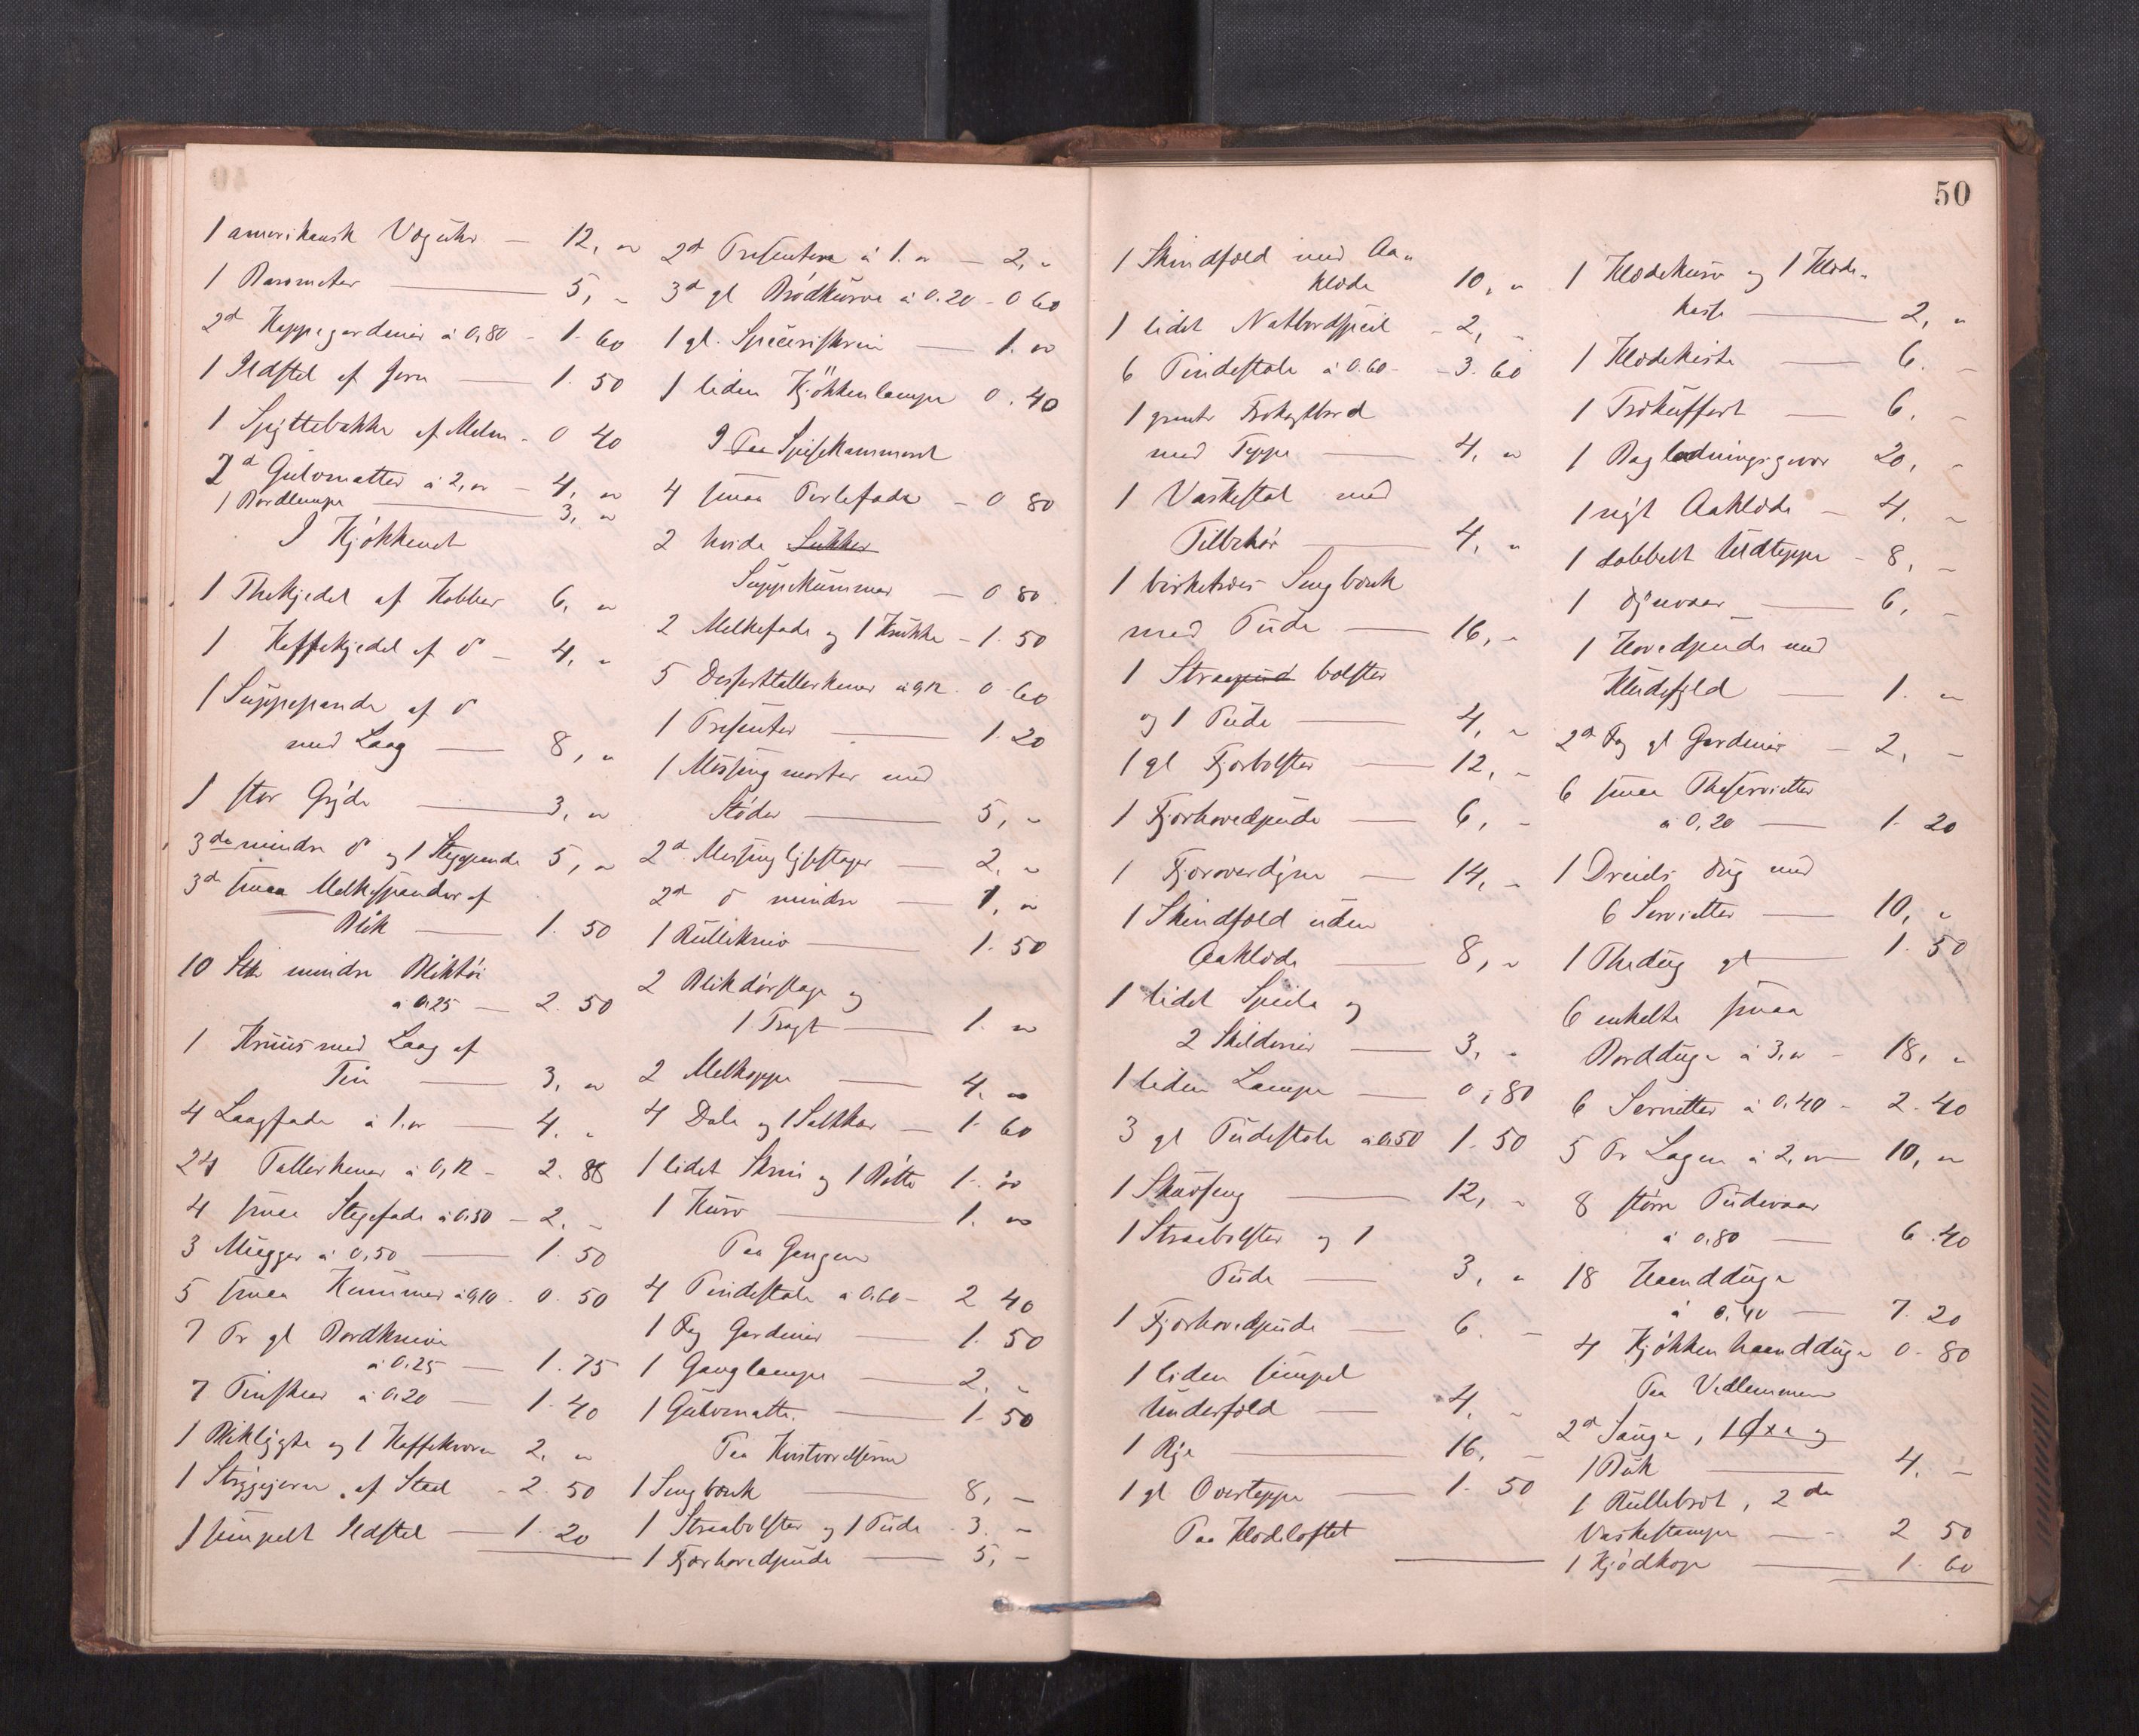 1 amerikansk Væguhr — 12, "
1 Barometer — 5, "
2d Kappegardiner à 0,80 - 1. 60
1 Ildstel af Jern — 1. 50
1 Spyttebakke af Malm - 0 40
2d Gulvmatter à 2, " - 4, "
1 Bordlampe — 3, "
I Kjøkkenet
1 Thekjedel af Kobber 6, "
1 Kaffekjedel af do - 4, "
1 Suppepande af do
med Laag — 8, "
1 stor Gryde — 3, "
3de mindre do og 1 Stegpande 5, "
3de smaa Melkespander af
Blik — 1. 50
10 Stk mindre Bliktøi
à 0,25 — 2. 50
1 Kruus med Laag af
Tin — 3, "
4 Laagfade à 1. " — 4. "
24 Tallerkener à 0,12 - 2. 88
4 smaa Stegefade à 0.50 - 2. "
3 Mugger à 0,50 — 1. 50
5 smaa Kummer à 0,10 - 0. 50
7 Pr gl Bordknive
à 0,25 — 1. 75
7 Tinskeer à 0,20 — 1. 40
1 Bliklygte og 1 Kaffekvern 2, "
1 Strygejern af Staal - 2. 50
1 simpelt Ildstel — 1. 20
2d Presentere à 1. " — 2, "
3d gl Brødkurve à 0.20 - 0 60
1 gl. Speceriskrin — 1. "
1 liden Kjøkkenlampe 0. 40
I Paa Spisekammeret
4 smaa Terlefade - 0 80
2 hvide Sukker
Suppekummer — 0 80
2 Melkefade og 1 Krukke - 1. 50
5 Desserttallerkener à 0,12 - 0. 60
1 Presenter — 1. 20
1 Messing morter med
Støder — 5, "
2d Messinglysestager — 2, "
2d do mindre — 1, "
1 Rullekniv — 1. 50
2 Blikdørslage og
1 Tragt — 1. "
2 Melkoppe — 4, "
4 Dale og 1 Saltkar — 1. 60
1 lidet Skrin og 1 Bøtte 1. "
1 Kurv — 1. "
Paa Gangen
4 Pindestole à 0.60 - 2 40
1 Fag Gardiner — 1. 50
1 Ganglampe — 2. "
1 Gulvmatte. — 1. 50
1 Sengbænk — 8, "
1 Straabolster og 1 Pude - 3. "
1 Fjærhovedpude — 5, "
50
1 Skindfæld med Aa-
klæde 10, "
1 lidet Natbordspeil - 2, "
6 Pindestole à 0.60 - 3. 60
1 grønt Frokostbord
med Teppe — 4, "
1 Vaskestol med
Tilbehør — 4, "
1 birketræes Sengbænk
med Pude — 16, "
1 Straapud bolster
og 1 Pude — 4, "
1 gl Fjærbolster — 12, "
1 Fjærhovedpude — 6, "
1 Fjæroverdyne — 14, "
1 Skindfæld uden
Aaklæde — 8, "
1 lidet Speile og
2 Skilderier — 3, "
1 liden Lampe — 0, 80
3 gl Pindestole à 0.50 1. 50
1 Skuvseng — 12, "
1 Straabolster og 1
Pude — 3, "
1 Fjærhovedpude — 6. "
1 liden simpel
Underfæld — 4. "
1 Rye — 16. "
1 gl Overteppe — 1. 50
Paa Klædeloftet
1 Klædekurv og 1 Klæde-
kasse — 2, "
1 Klædekiste — 6. "
1 Trækuffert — 6. "
1 Bagladningsgevær 20, "
1 nyt Aaklæde - 4. "
1 dobbelt Uldteppe - 8, "
1 Dynevaar — 6, "
1 Hovedpude med
Kludefyld — 1. "
2d Fag gl Gardiner — 2, "
6 smaa Theservietter
à 0,20 — 1. 20
1 Dreils Dug med
6 Servietter — 10, "
1 Thedug gl — 1. 50
6 enkelte smaa
Bordduge à 3, " - 18, "
6 Servietter à 0.40 - 2. 40
5 Pr Lagen à 2, " — 10, "
8 større Pudevaar
à 0,80 — 6 .40
18 Haandduge
à 0,40 — 7. 20
4 Kjøkken haandduge 0. 80
Paa Vedlemmen
2d Sauge, 1 Øxe og
1 Buk — 4. "
1 Rullebræt, 2de
Vaskestamper — 2 50
1 Kjødkop — 1. 60